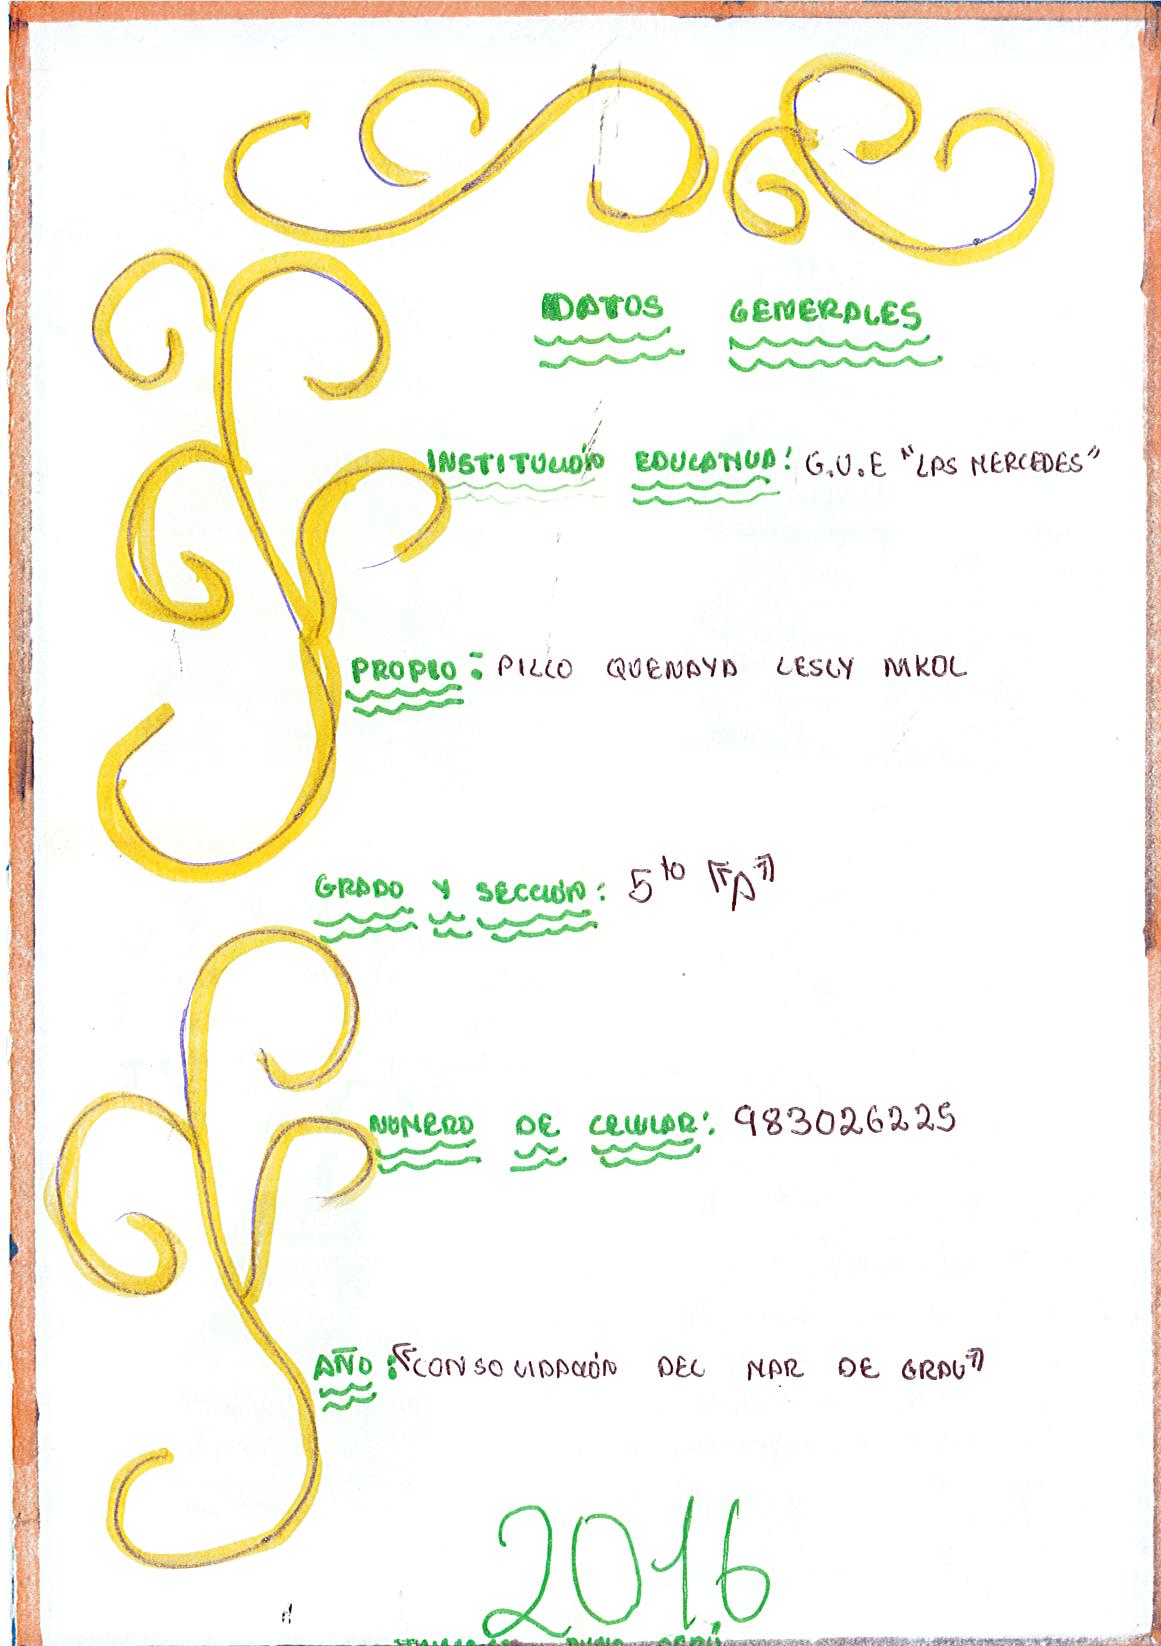 DATOS GENERALES
INSTITUCIÓN EDUCATIVA: G.U.E "LAS MERCEDES"
PROPIO: PILLO QUENAYA LESLY NIKOL
GRADO Y SECCIÓN: 5to "A"
NÚMERO DE CELULAR: 983026225
AÑO: "CONSOLIDACIÓN DEL MAR DE GRAU"
2016
PUNO PERÚ